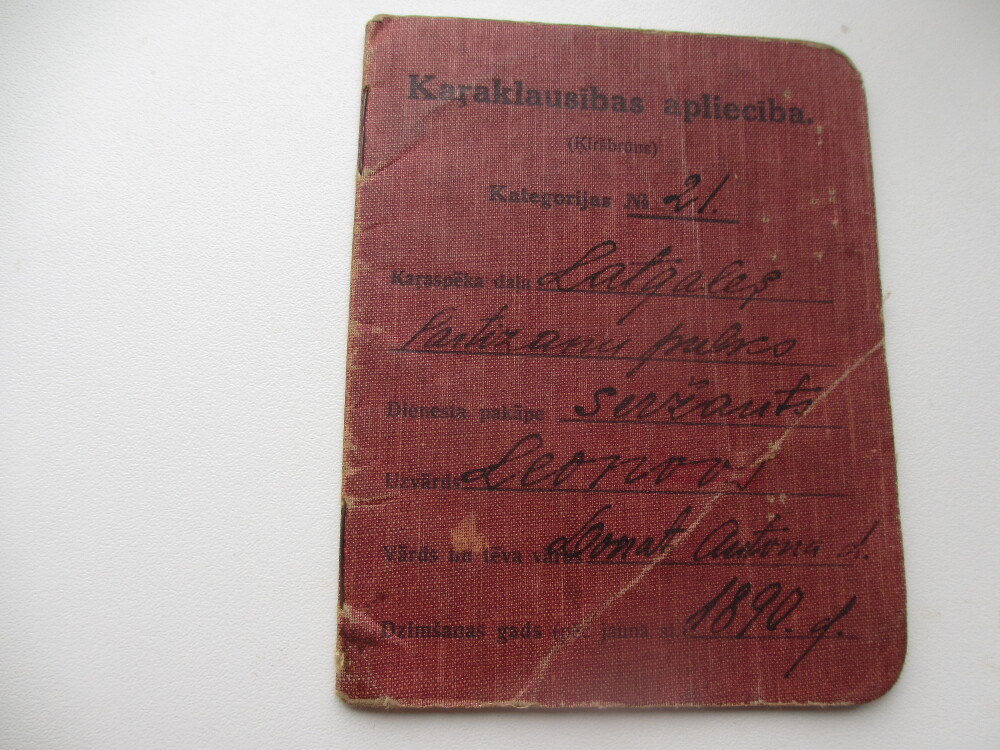 Kaŗaklausības apliecība.
(Ķiršbrūns)
Kategorijas № 21.
Kaŗaspēka daļa Latgales
Partizanu pulks
Dienesta pakāpe seržants
Uzvārds Leonovs
Vārds un tēva vārds Donat Antona d.
Dzimšanas gads (pēc jaunā st.) 1890. g.